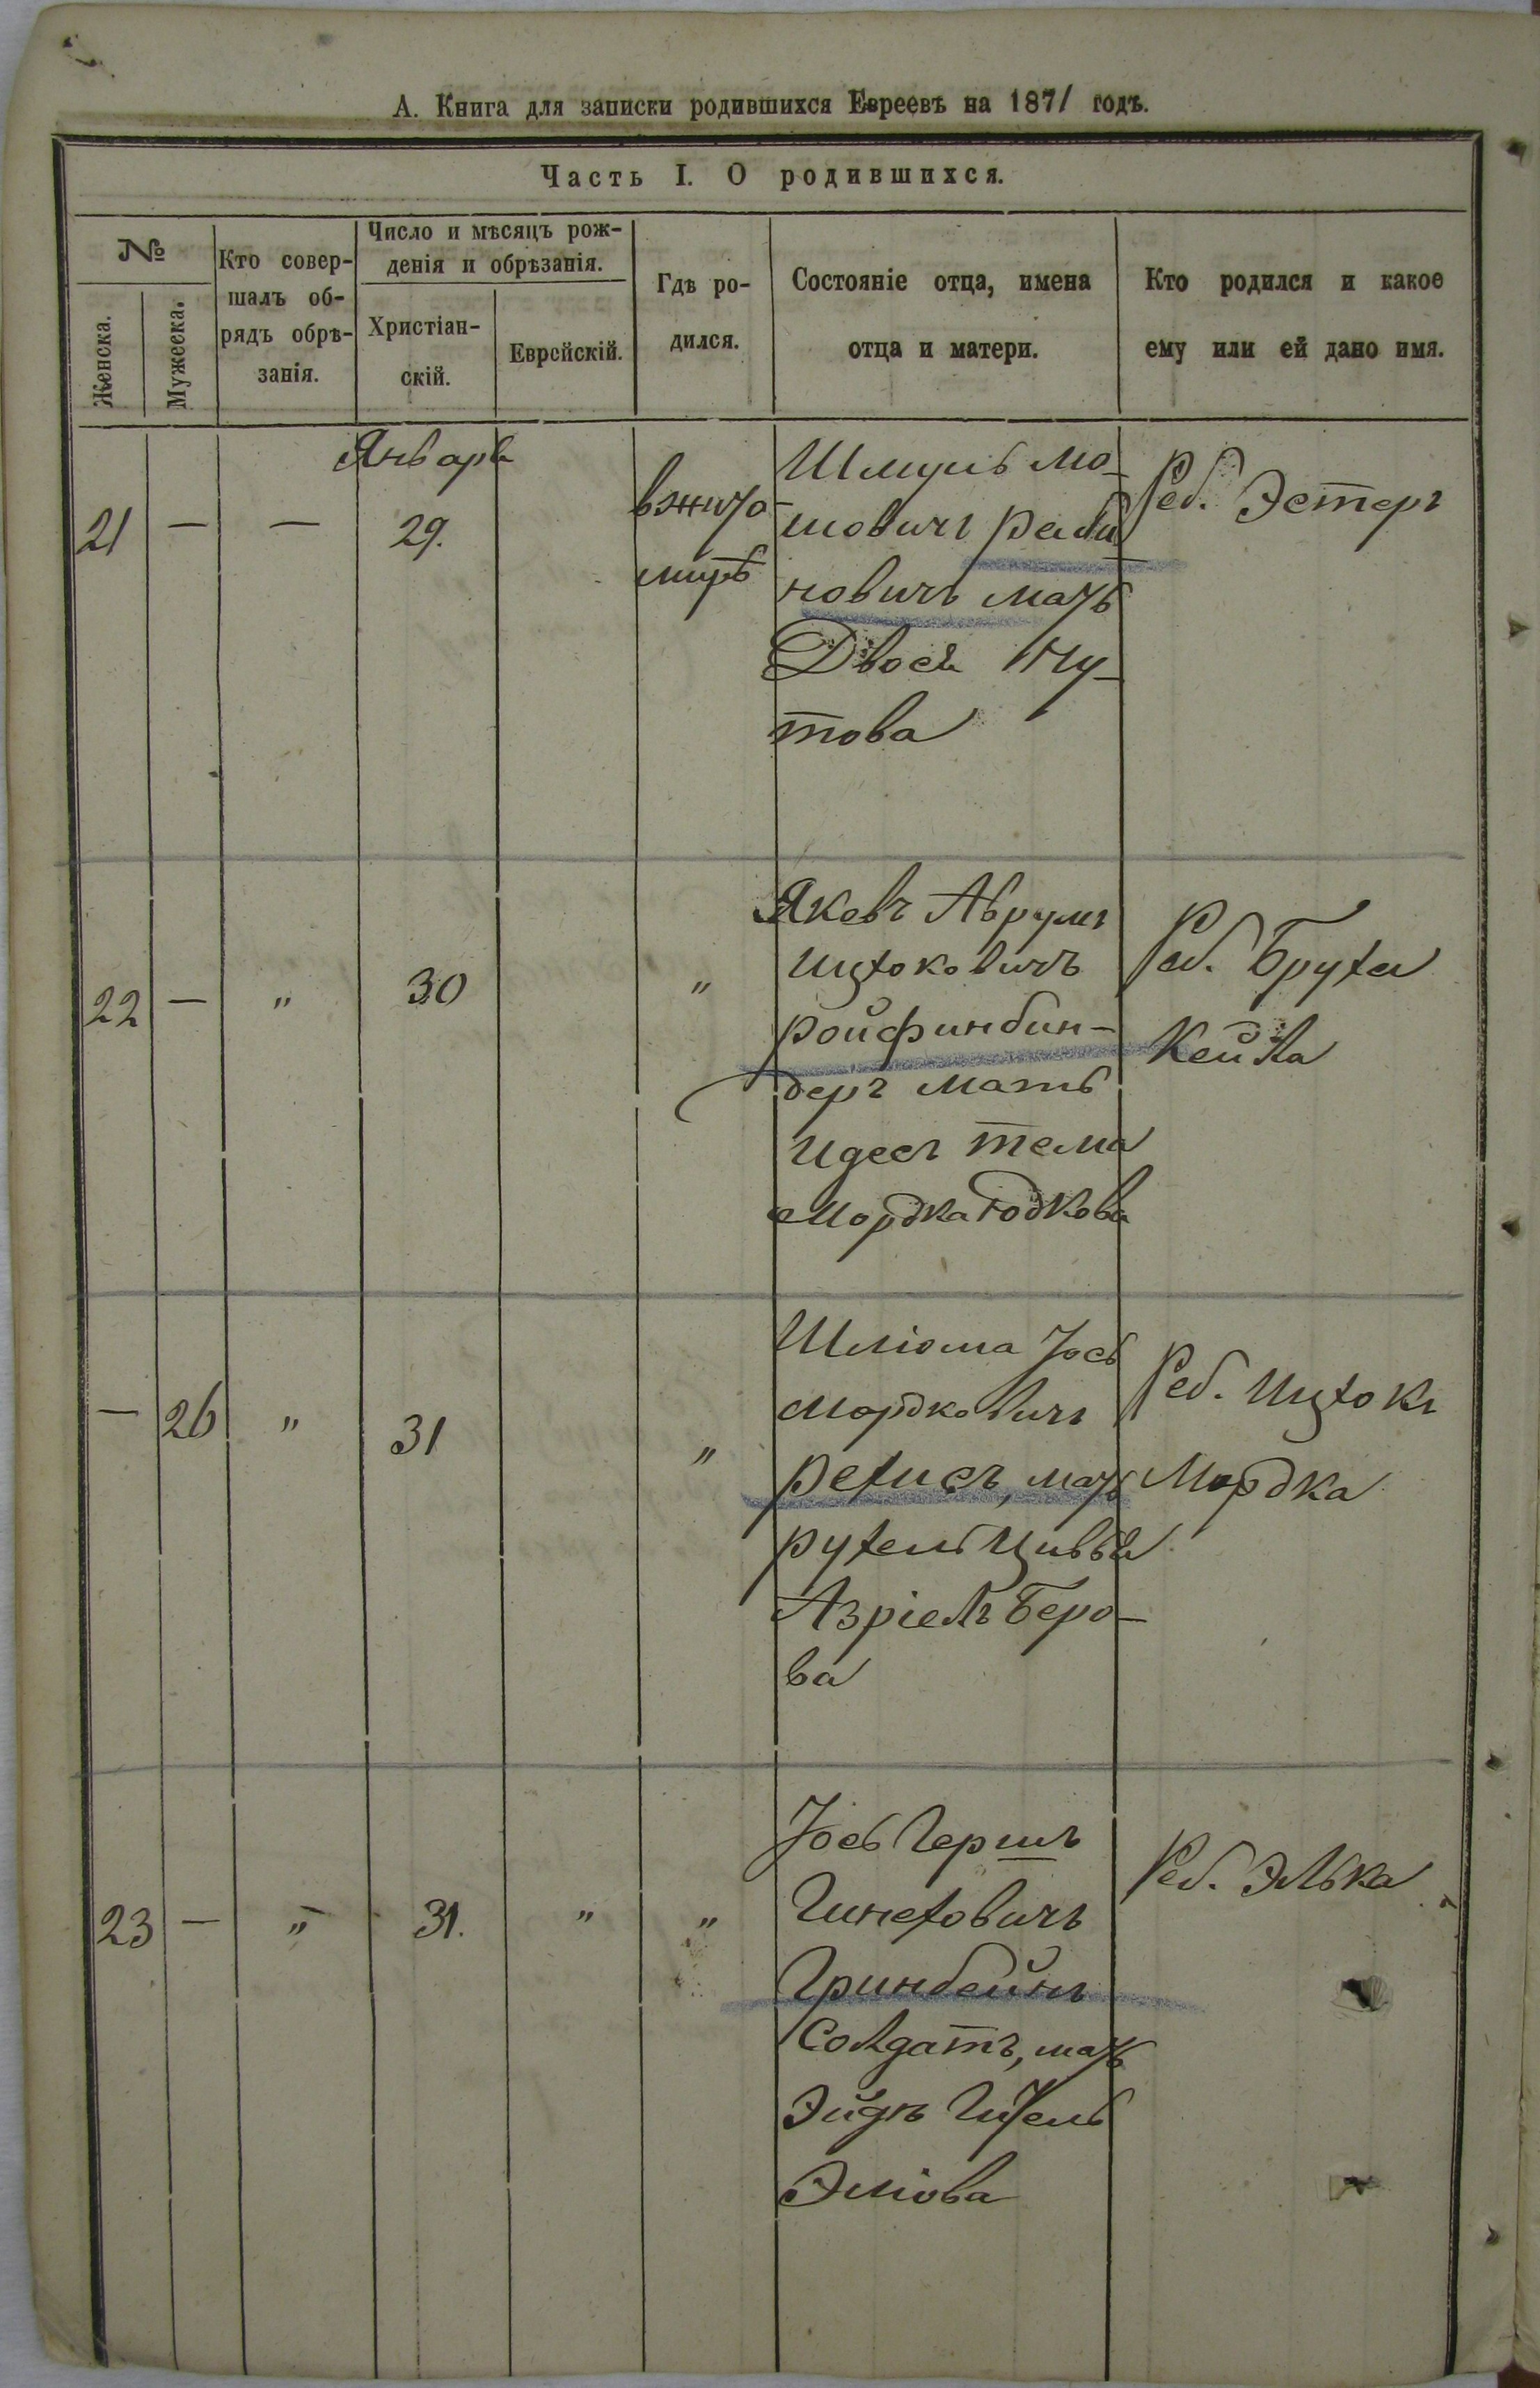 А. Книга для записки родившихся Евреевъ на 1871 годъ.
Часть I. О родившихся.
№
Женска.
Мужеска.
Кто совер-
шалъ об-
рядъ обрѣ-
занія.
Число и мѣсяцъ рож-
денія и обрѣзанія.
Христіан-
скій.
Еврейскій.
Гдѣ ро-
дился.
Состояніе отца, имена
отца и матери.
Кто родился и какое
ему или ей дано имя.
Январь
21 — — 29.
вжито-
мирѣ
Шмуль Мо-
шовичъ Раби
новичъ мать
Двося Ну-
това
Реб. Эстеръ
22 — " 30 "
Якевъ Аврумъ
Ицхоковичъ
Ройфинбин-
деръ мать
Идесъ Тема
Мордка Юдкова
Реб. Бруха
Кейла
— 26 " 31 "
Шліома Іось
Мордковичъ
Рехисъ, мать
Рухель Цивья
Азріель Беро-
ва
Реб. Ицхокъ
Мордка
23 — " 31. " "
Іось Гершъ
Гинеховичъ
Гринбейнъ
Солдатъ, мать
Эйдъ Гитель
Эліова
Реб. Элька